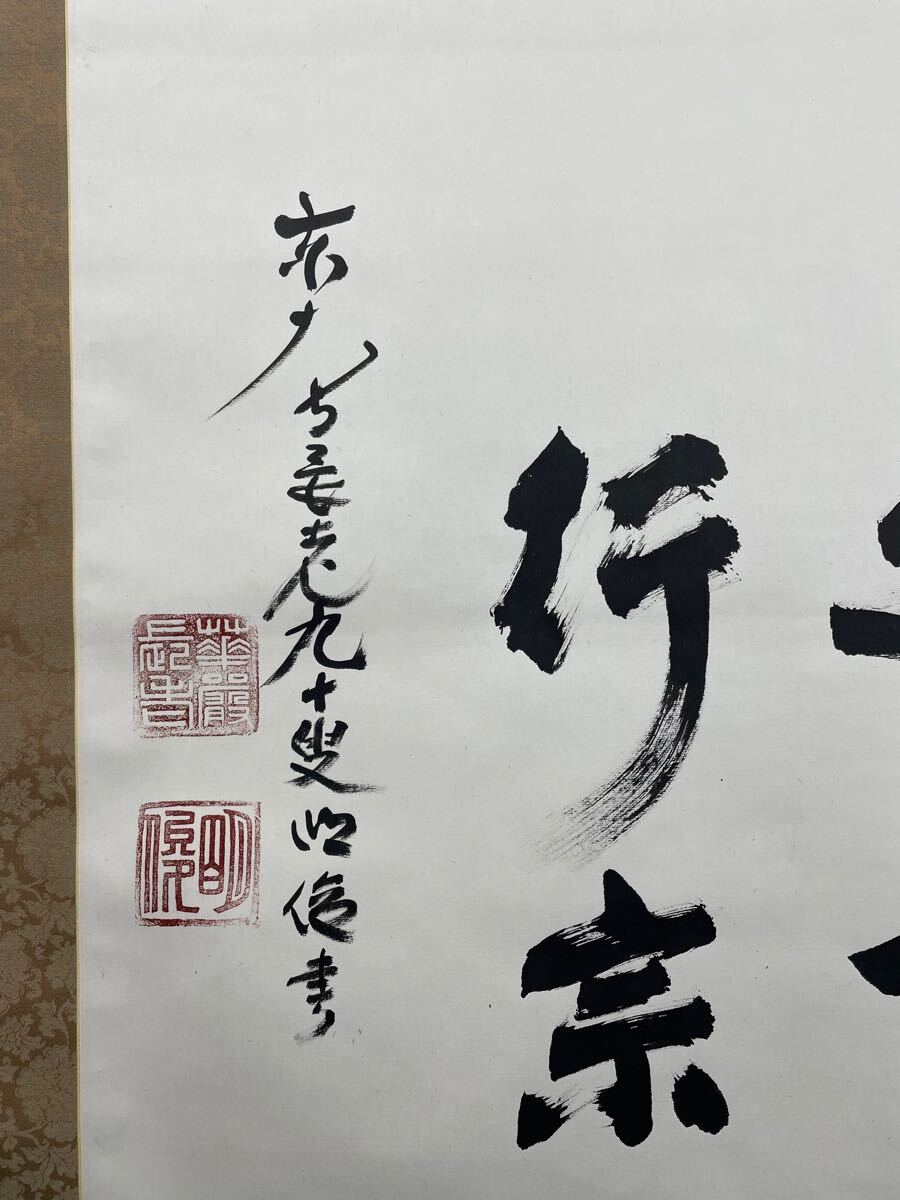 行宗
東大寺長老九十叟明俊書
華嚴
明俊